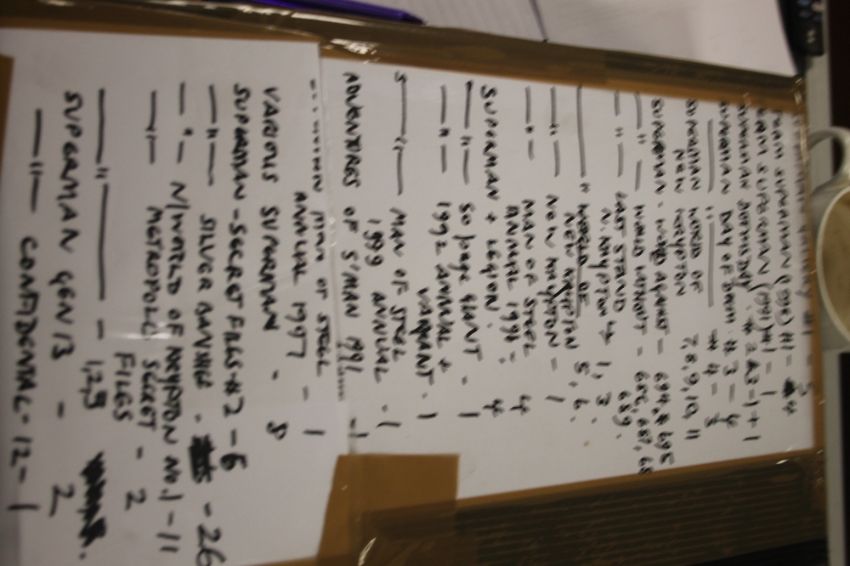 TEAM SUPERMAN (1998) #1 - 4
TEAM SUPERMAN (1991) #1 - 1
SUPERMAN DOOMSDAY # 2 & 3 - 1 + 1
SUPERMAN DAY OF DOOM # 3 - 4
—— " —— # 4 - 3
SUPERMAN WORLD OF
NEW KRYPTON 7, 8, 9, 10, 11
SUPERMAN - WORLD AGAINST - 694, 695
— " — WORLD WITHOUT - 686, 687, 68
689.
— " — LAST STAND
N. KRYPTON 1, 3.
—— " WORLD OF
NEW KRYPTON 5, 6.
— " — NEW KRYPTON - 1
— " — MAN OF STEEL
ANNUAL 1996 - 4
SUPERMAN + LEGION - 4
— " — 80 PAGE GIANT - 1
— " — 1992 ANNUAL +
VARIANT - 1
S —— " —— MAN OF STEEL
1999 ANNUAL - 1
ADVENTURES OF S'MAN 1991 - 1
MAN OF STEEL
ANNUAL 1997 - 1
VARIOUS SUPERMAN - 8
SUPERMAN - SECRET FILES #2 - 6
— " — SILVER BANSHEE - 26
— " — N/WORLD OF KRYPTON NO.1 - 11
— " — METROPOLIS SECRET
FILES - 2
—— " —— - 1, 2, 3
SUPERMAN GEN 13 - 2
— " — CONFIDENTIAL - 12 - 1